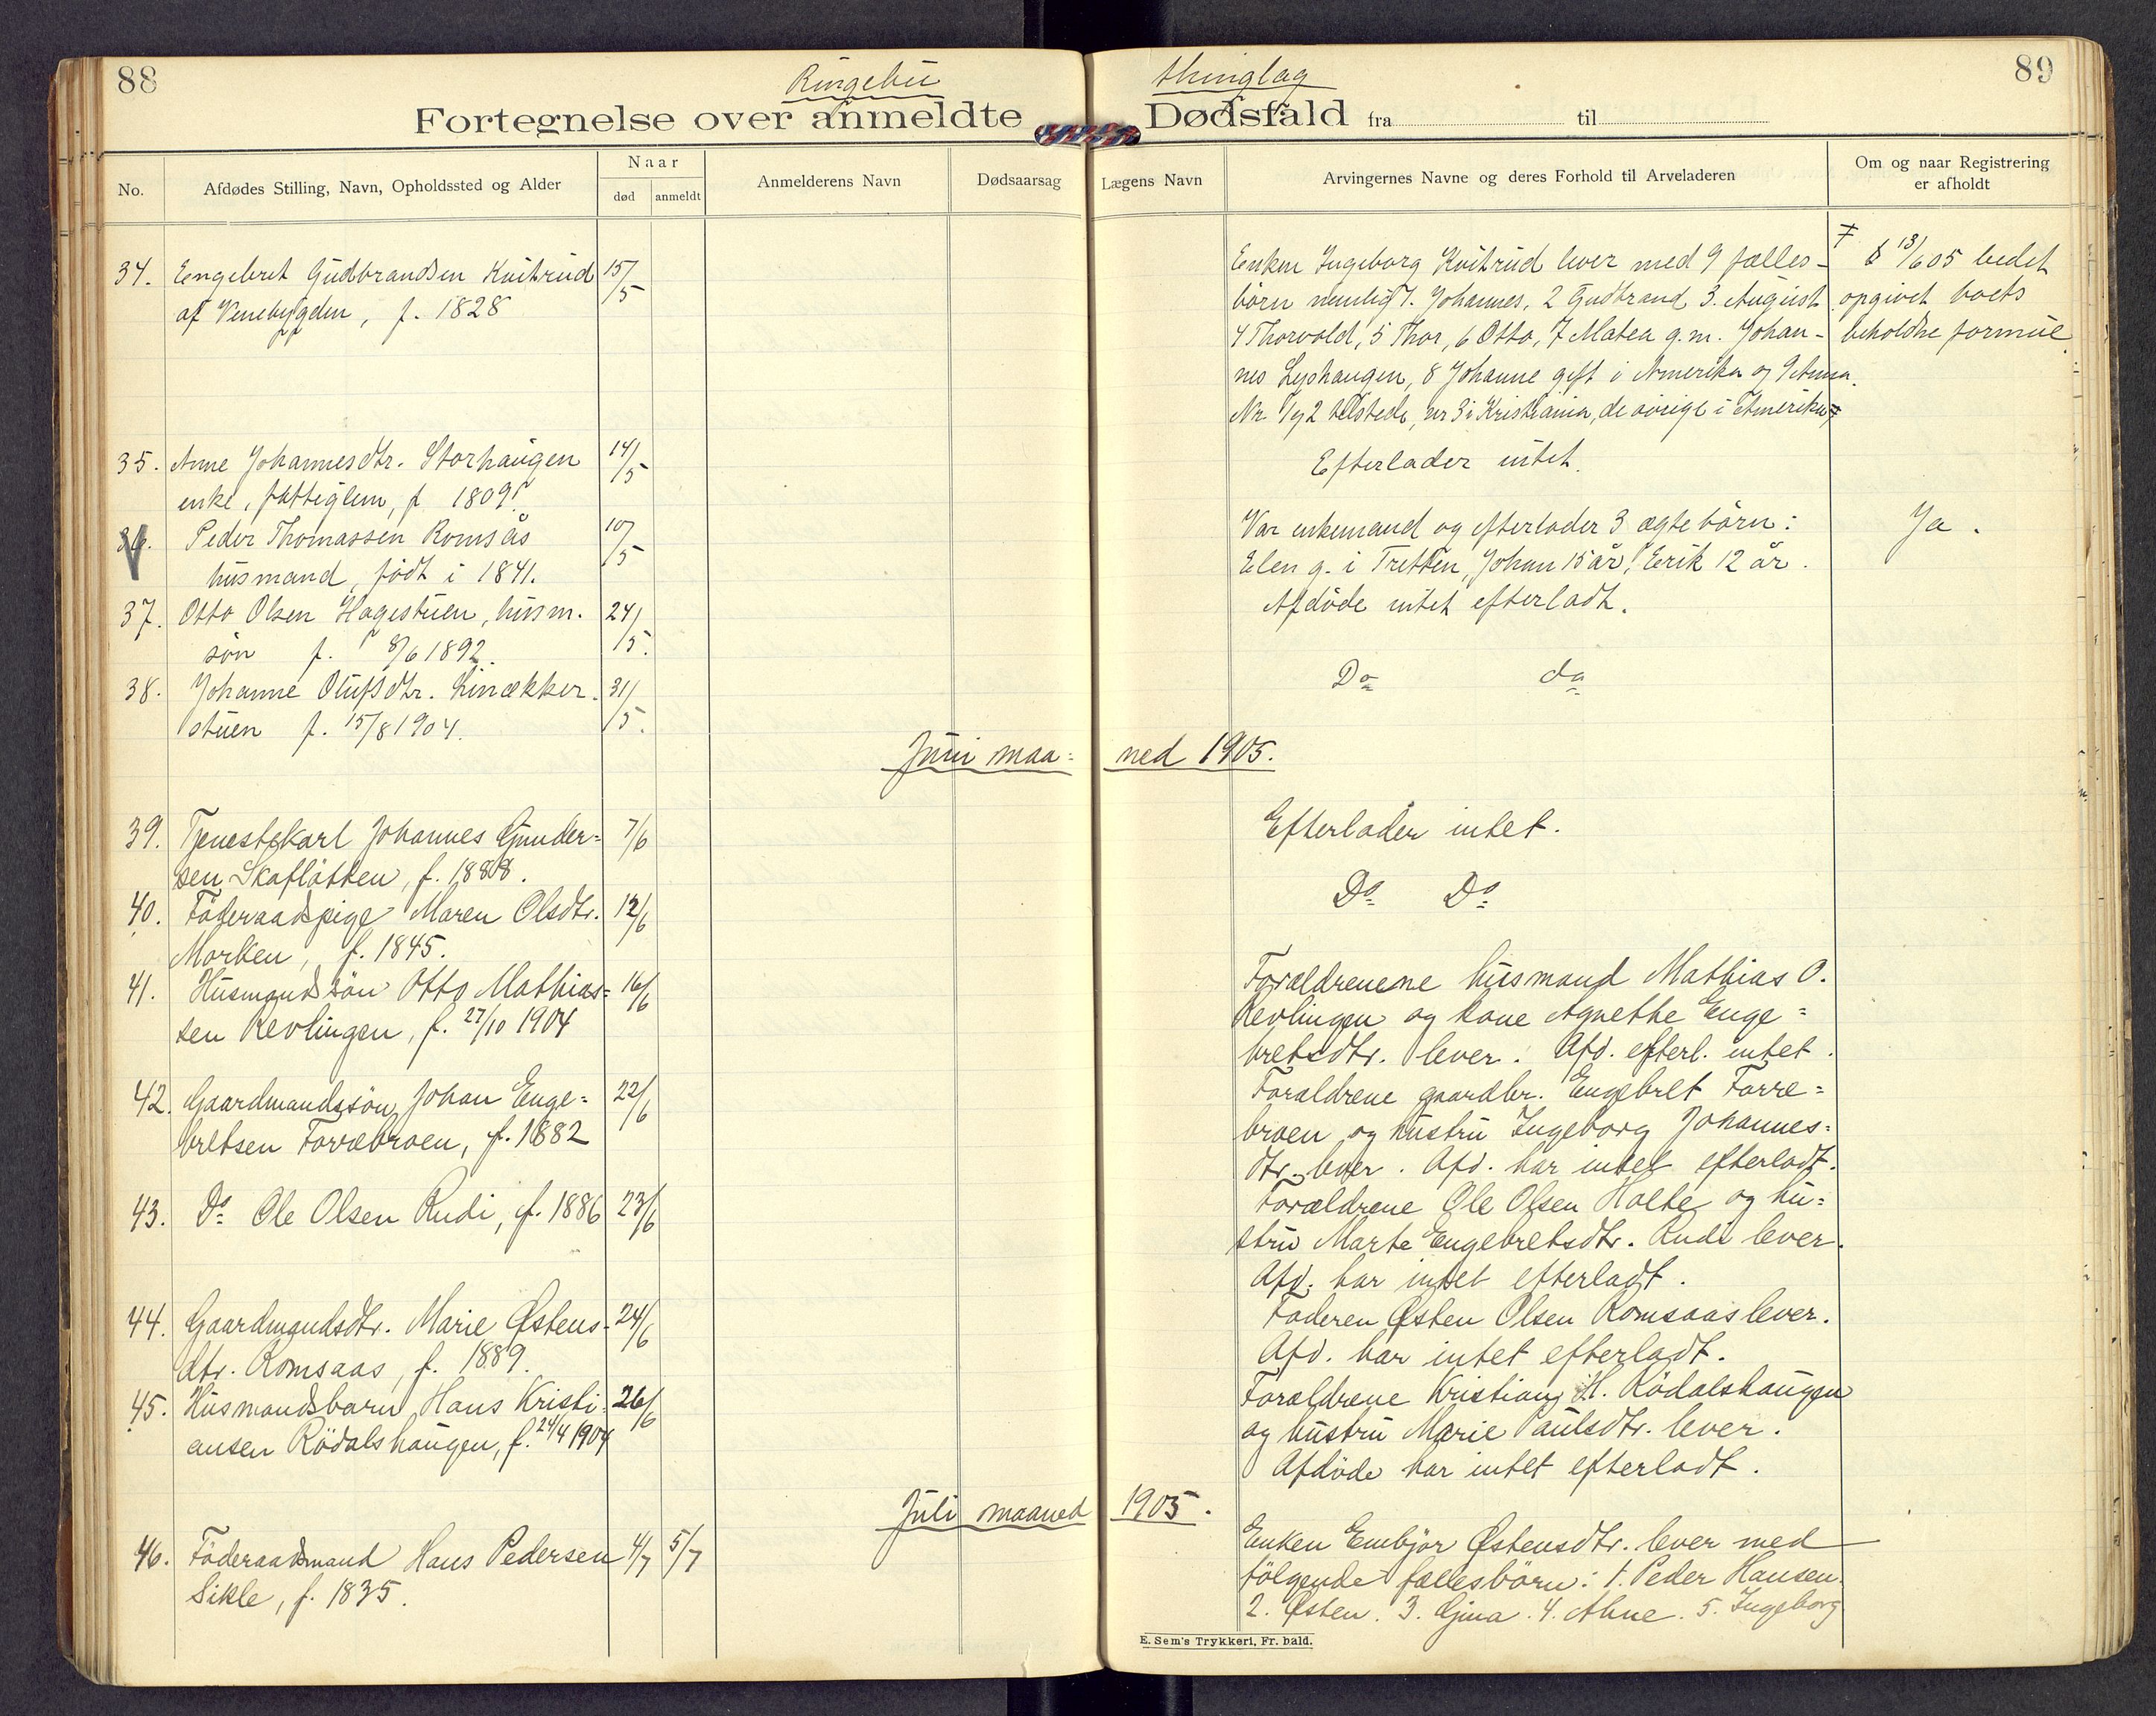 88
Ringebu
thinglag
89
Fortegnelse over anmeldte Dødsfald fra til
No.
Afdødes Stilling, Navn, Opholdssted og Alder
Naar
død
anmeldt
Anmelderens Navn
Dødsaarsag
Lægens Navn
Arvingernes Navne og deres Forhold til Arveladeren
Om og naar Registrering
er afholdt
34. Engebret Gudbrandsen Kvitrud 15/5
af Venebygden, f. 1828
Enken Ingeborg Kvitrud lever med 9 fælles-
børn nemlig 1. Johannes, 2 Gudbrand 3. August
4 Thorvald, 5 Thor, 6 Otto, 7 Matea g.m. Johan-
nes Lyshaugen, 8 Johanne gift i Amerika og 9 Anna.
Nr 1 og 2 tilstede, nr 3 i Kristiania, de øvrige i Amerika
13/6 05 bedet
opgivet boets
beholdne formue
35. Anne Johannesdtr. Storhaugen 14/5
enke, fattiglem, f. 1809.
Efterlader intet.
36. Peder Thomassen Romsås 10/5
husmand, født i 1841.
Var enkemand og efterlader 3 ægte børn:
Elen g. i Tretten, Johan 15 år, Erik 12 år.
Ja.
37. Otto Olsen Hagestuen, husm. 24/5.
søn f. 8/6 1892.
Afdøde intet efterladt.
38. Johanne Olufsdtr. Linækker 31/5.
stuen f. 15/8 1904.
Do do
Juni maaned 1905.
39. Tjenestekarl Johannes Gunder= 7/6
sen Skaflåtten, f. 1888.
Efterlader intet.
40. Føderaadspige Maren Olsdtr. 12/6
Morken, f. 1845.
Do Do
41. Husmandssøn Otto Mathias= 16/6
sen Revlingen, f. 27/10 1904
Forældrenene husmand Mathias O.
Revlingen og kone Agnethe Enge=
bretsdtr. lever. Afd. efterl. intet.
42. Gaardmandssøn Johan Enge= 22/6
bretsen Forrebroen, f. 1882
Forældrene gaardbr. Engebret Forre=
broen og hustru Ingeborg Johannes=
dtr. lever. Afd. har intet efterladt.
43. Do Ole Olsen Rudi, f. 1886 23/6
Forældrene Ole Olsen Holte og hu=
stru Marte Engebretsdtr. Rudi lever.
Afd. har intet efterladt.
44. Gaardmandsdtr. Marie Østens- 24/6
dtr. Romsaas, f. 1889.
Faderen Østen Olsen Romsaas lever.
Afd. har intet efterladt.
45. Husmandsbarn Hans Kristi- 26/6
ansen Rödalshaugen, f. 24/4 1904
Forældrene Kristian H. Rödalshaugen
og hustru Marie Paulsdtr. lever.
Afdöde har intet efterladt.
Juli maaned 1905.
46. Föderaadsmand Hans Pedersen 4/7 5/7
Sikle, f. 1835.
Enken Embjör Østensdtr. lever med
følgende fællesbörn: 1. Peder Hansen.
2. Østen. 3. Gjina. 4. Ahne. 5. Ingeborg
E. Sem's Trykkeri, Fr.hald.